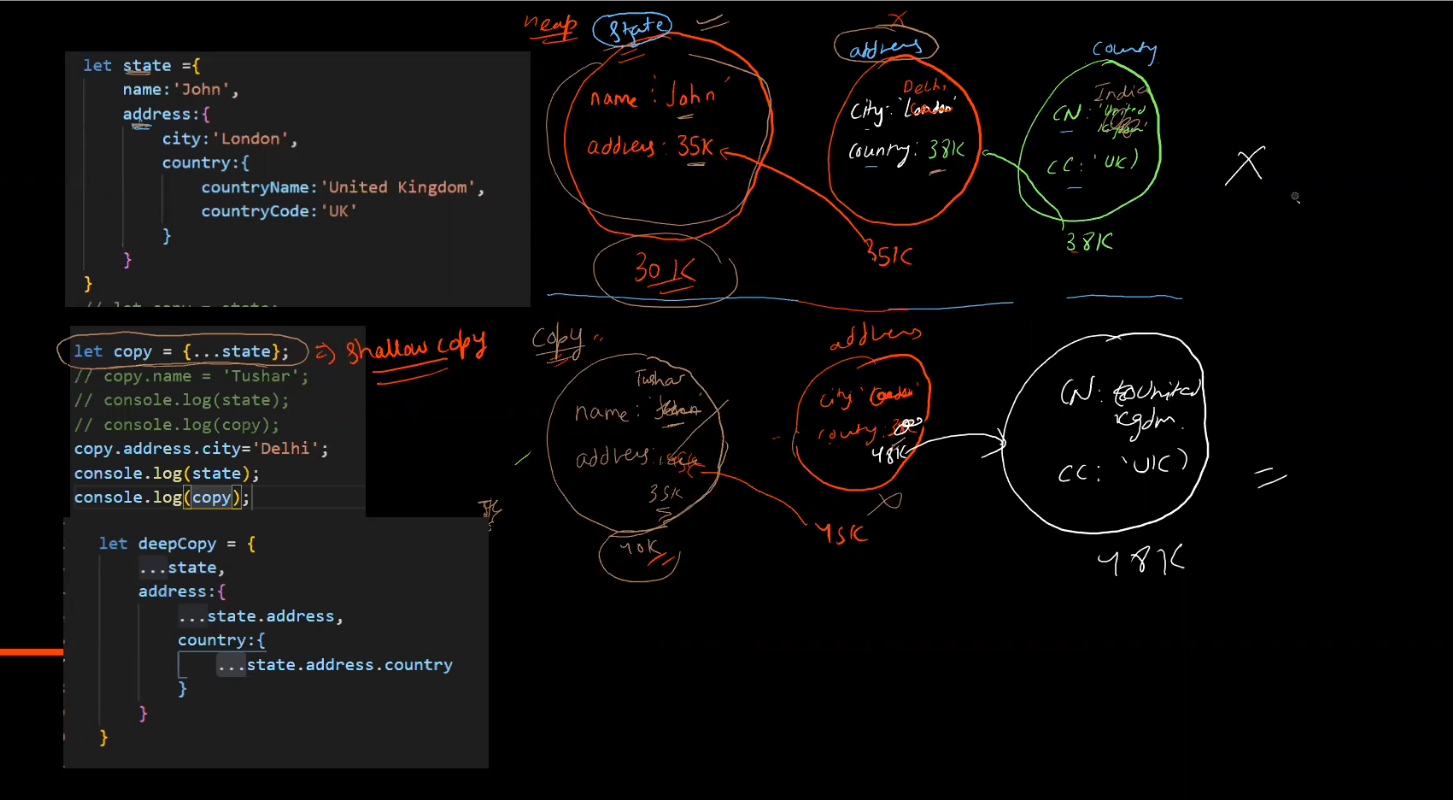 let state ={
name:'John',
address:{
city:'London',
country:{
countryName:'United Kingdom',
countryCode:'UK'
}
}
}
// let copy = state;
let copy = {...state};
=> Shallow copy
// copy.name = 'Tushar';
// console.log(state);
// console.log(copy);
copy.address.city='Delhi';
console.log(state);
console.log(copy);
let deepCopy = {
...state,
address:{
...state.address,
country:{
...state.address.country
}
}
}
heap
state
name: 'John'
address: 35K
30K
address
Delhi
city: 'London'
country: 38K
35K
County
India
CN: 'United
CC: 'UK'
38K
X
copy
Tushar
name:
address:
35K
40K
address
city 'London'
county:
48K
45K
CN: United
CC: 'UK'
48K